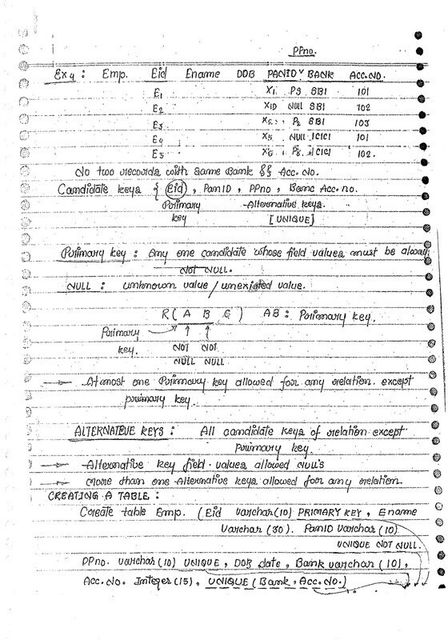 PPno.
Ex 4 : Emp. Eid Ename DOB PANID BANK ACC.NO.
E1 X1 P3 SBI 101
E2 X10 NULL SBI 102
E3 P2 SBI 103
E4 X5 NULL ICICI 101
E5 X6 P8 ICICI 102.
No two records with same Bank && Acc. No.
Candidate keys { Eid , PanID , PPno , Banc Acc. no.
Primary Alternative keys.
key [UNIQUE]
Primary key : Any one candidate whose field values must be always
NOT NULL.
NULL : unknown value / unexisted value.
R ( A B C ) AB : Primary key.
Primary
key. NOT NOT
NULL NULL
→ Atmost one Primary key allowed for any relation. except
primary key.
ALTERNATIVE KEYS : All candidate keys of relation except
Primary key.
→ Alternative key field values allowed NULL's
→ More than one Alternative keys allowed for any relation.
CREATING A TABLE :
Create table Emp. (Eid varchar(10) PRIMARY KEY , Ename
Varchar (30). PanID varchar (10)
UNIQUE NOT NULL.
PPno. varchar (10) UNIQUE , DOB date , Bank varchar (10) ,
Acc. No. Integer (15) , UNIQUE (Bank , Acc. No.)